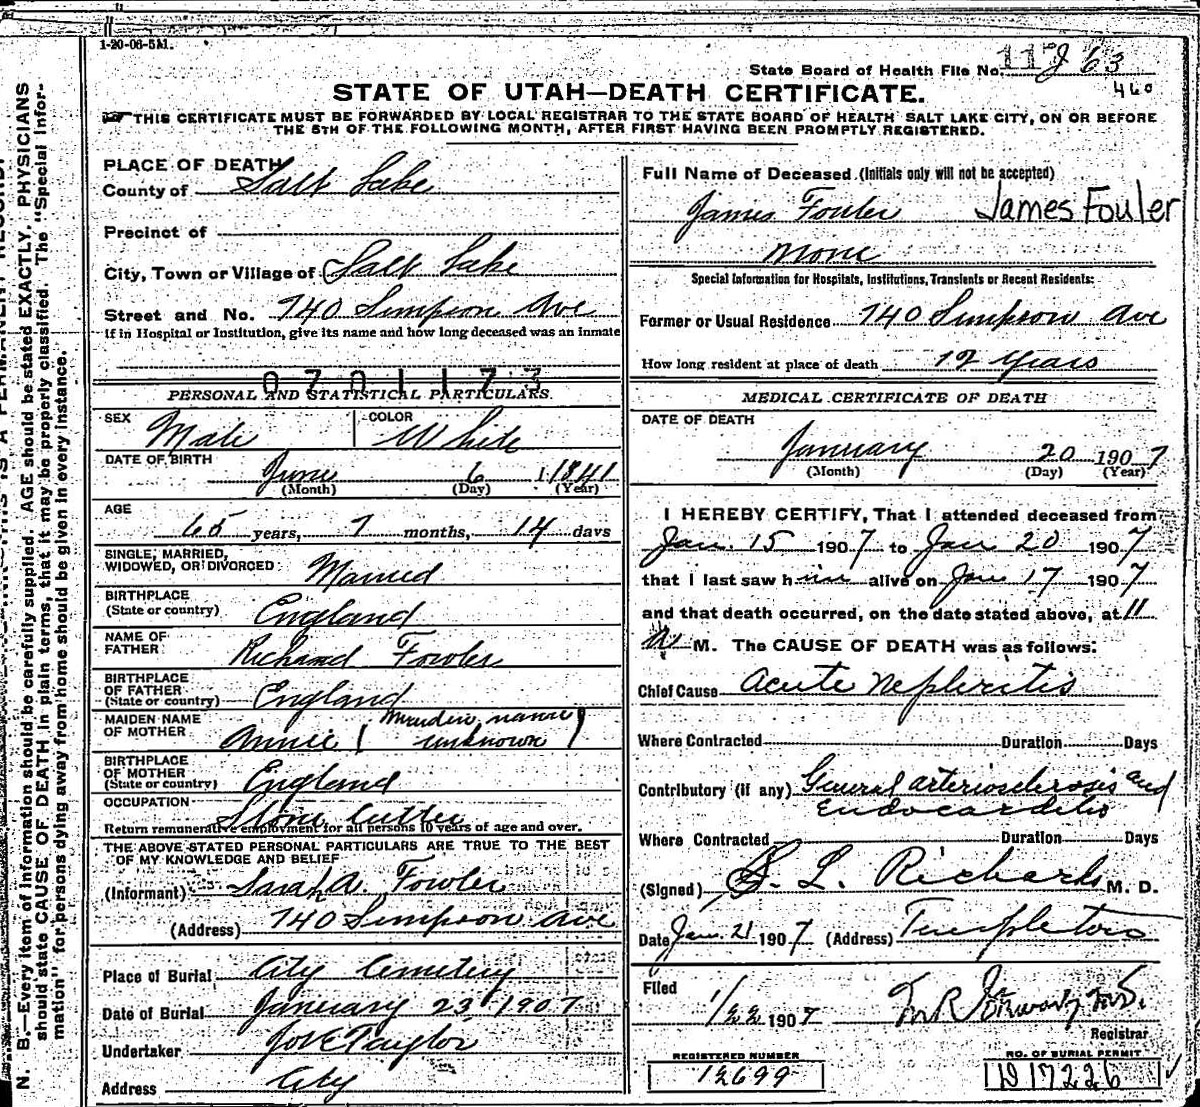 1-20-06-5M.
State Board of Health File No. 63
460
STATE OF UTAH—DEATH CERTIFICATE.
THIS CERTIFICATE MUST BE FORWARDED BY LOCAL REGISTRAR TO THE STATE BOARD OF HEALTH SALT LAKE CITY, ON OR BEFORE
THE 5TH OF THE FOLLOWING MONTH, AFTER FIRST HAVING BEEN PROMPTLY REGISTERED.
N. B.—Every item of information should be carefully supplied. AGE should be stated EXACTLY. PHYSICIANS
should state CAUSE OF DEATH in plain terms, that it may be properly classified. The "Special Infor-
mation" for persons dying away from home should be given in every instance.
PLACE OF DEATH
County of Salt Lake
Precinct of
City, Town or Village of Salt Lake
Street and No. 740 Simpson Ave
If in Hospital or Institution, give its name and how long deceased was an inmate
0701173
PERSONAL AND STATISTICAL PARTICULARS.
SEX Male COLOR White
DATE OF BIRTH
June 6 1841
(Month) (Day) (Year)
AGE
65 years, 7 months, 14 days
SINGLE, MARRIED,
WIDOWED, OR DIVORCED Married
BIRTHPLACE
(State or country) England
NAME OF
FATHER Richard Fowler
BIRTHPLACE
OF FATHER
(State or country) England
MAIDEN NAME
OF MOTHER Annie (maiden name
unknown)
BIRTHPLACE
OF MOTHER
(State or country) England
OCCUPATION Stone Cutter
Return remunerative employment for all persons 10 years of age and over.
THE ABOVE STATED PERSONAL PARTICULARS ARE TRUE TO THE BEST
OF MY KNOWLEDGE AND BELIEF
(Informant) Sarah A. Fowler
(Address) 740 Simpson Ave
Place of Burial City Cemetery
Date of Burial January 23, 1907
Undertaker Jos E Taylor
Address City
Full Name of Deceased (Initials only will not be accepted)
James Fouler James Fouler
Special Information for Hospitals, Institutions, Transients or Recent Residents:
Former or Usual Residence 740 Simpson Ave
How long resident at place of death 12 Years
MEDICAL CERTIFICATE OF DEATH
DATE OF DEATH
January 20 1907
(Month) (Day) (Year)
I HEREBY CERTIFY, That I attended deceased from
Jan. 15 1907 to Jan 20 1907
that I last saw him alive on Jan 17 1907
and that death occurred, on the date stated above, at 11
A M. The CAUSE OF DEATH was as follows:
Chief Cause Acute Nephritis
Where Contracted Duration Days
Contributory (if any) General arteriosclerosis and
Endocarditis
Where Contracted Duration Days
(Signed) S. L. Richards M. D.
Date Jan. 21 1907 (Address) Templeton
Filed
1/22 1907
Registrar
REGISTERED NUMBER
12699
NO. OF BURIAL PERMIT
D 17226